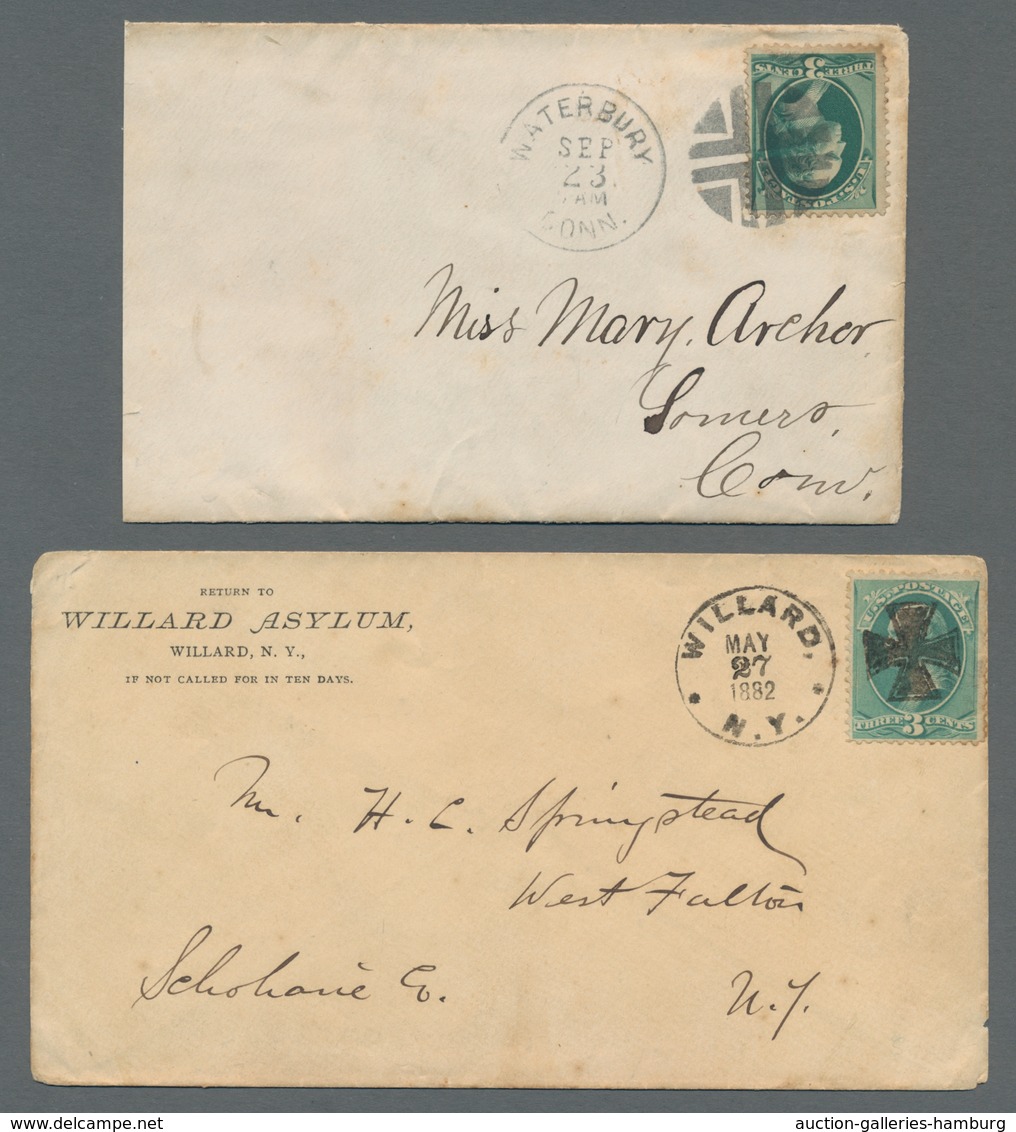 WATERBURY
SEP
23
AM
CONN.
THREE 3 CENTS
U.S. POSTAGE
Miss Mary. Archer
Somers,
Conn.
RETURN TO
WILLARD ASYLUM,
WILLARD, N. Y.,
IF NOT CALLED FOR IN TEN DAYS.
WILLARD,
MAY
27
1882
N.Y.
U.S. POSTAGE
THREE 3 CENTS
Mr. H. C. Springstead
West Fulton
Schoharie Co. N.Y.
www.delcampe.net
auction-galleries-hamburg